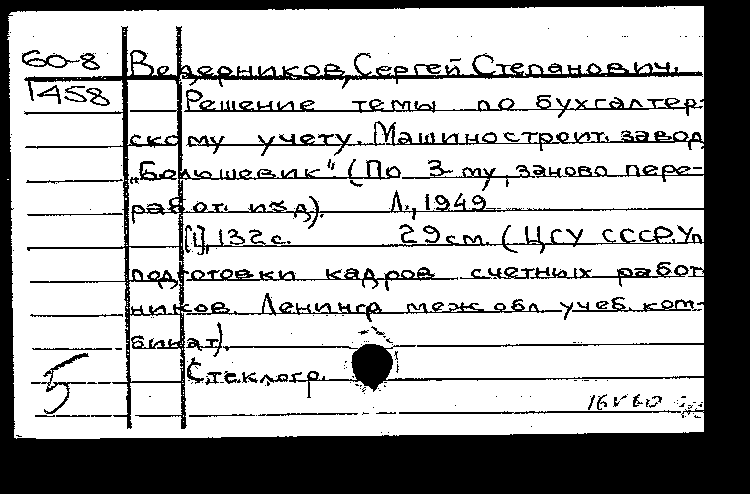 60-8
1458
Ведерников, Сергей Степанович.
Решение темы по бухгалтер-
скому учету. Машиностроит. завод
„Большевик" (По 3-му, заново пере-
работ. изд). Л., 1949
[1], 132 с. 29 см. (ЦСУ СССР. Уп
подготовки кадров счетных работ
ников. Ленингр меж обл учеб. ком-
бинат).
Стеклогр.
5
16 V 60